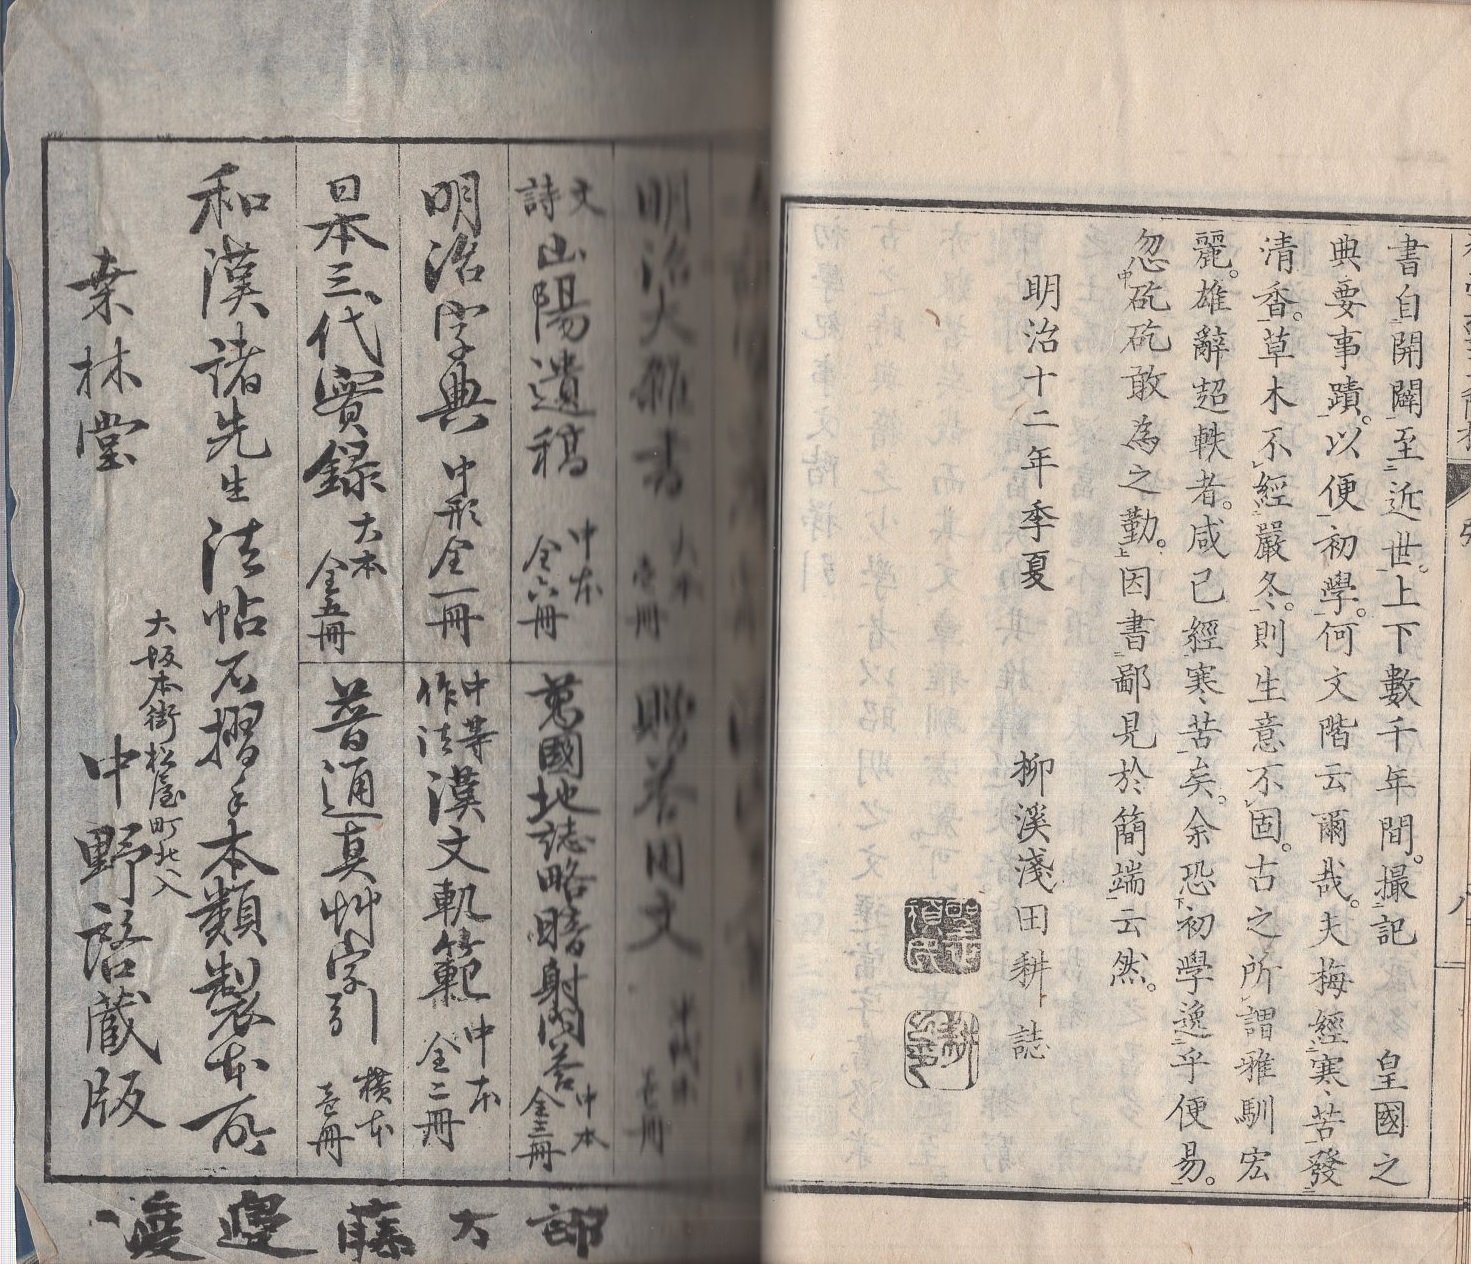 書自開闢至近世。上下數千年間。撮記　皇國之
典要事蹟。以便初學。何文階云爾哉。夫梅經寒苦發
清香。草木不經嚴冬。則生意不固。古之所謂雅馴宏
麗。雄辭超軼者。咸已經寒苦矣。余恐初學逸乎便易。
忽中矻矻敢為之勤。因書鄙見於簡端云然。
明治十二年季夏
柳溪淺田耕誌
明治大雜書 大本 壱冊
贈答用文 壱冊
文詩 山陽遺稿 中本 全六冊
萬國地誌略暗射問答 中本 全三冊
明治字典 中形全一冊
中等作法 漢文軌範 中本 全二冊
日本三代實録 大本 全五冊
普通真艸字引 横本 壱冊
和漢諸先生法帖石摺手本類製本所
大坂本街松屋町北ヘ入
桒林堂 中野 蔵版
渡邉藤太郎